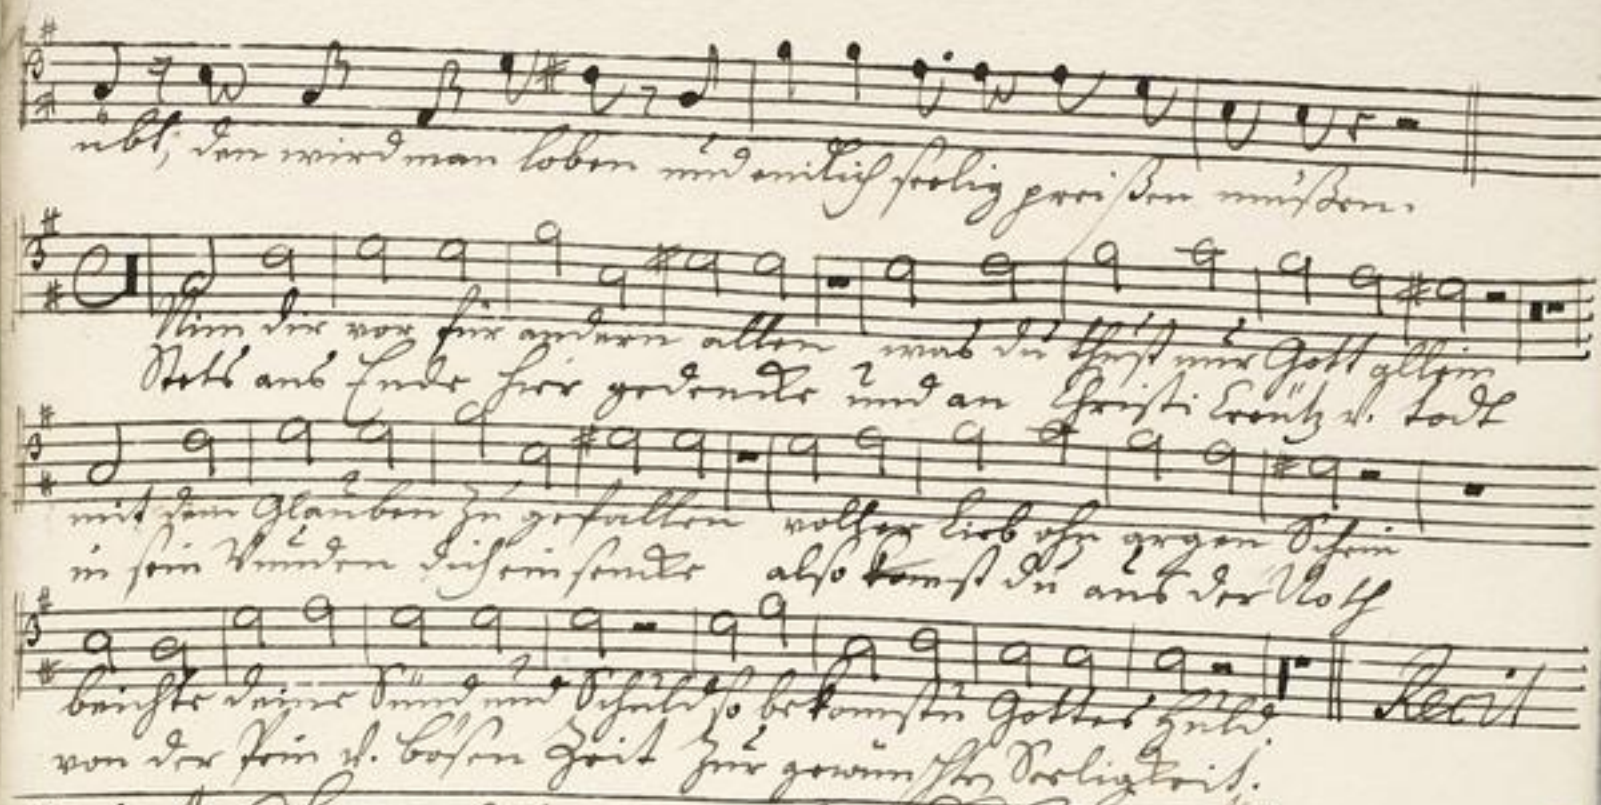 übt, den wird man loben und endlich seelig preißen müßen.
Nim dir vor für andern allen was du thust nur Gott allein
Stets ans Ende hier gedencke und an Christi Creütz v. Todt
mit dem Glauben zu gefallen voller Lieb ohn argen Schein
in sein Wunden dich einsencke also komst du aus der Noth
beichte deine Sünd und Schuld so bekomstu Gottes Huld
Recit
von der Pein v. bösen Zeit zur gewünschten Seeligkeit.